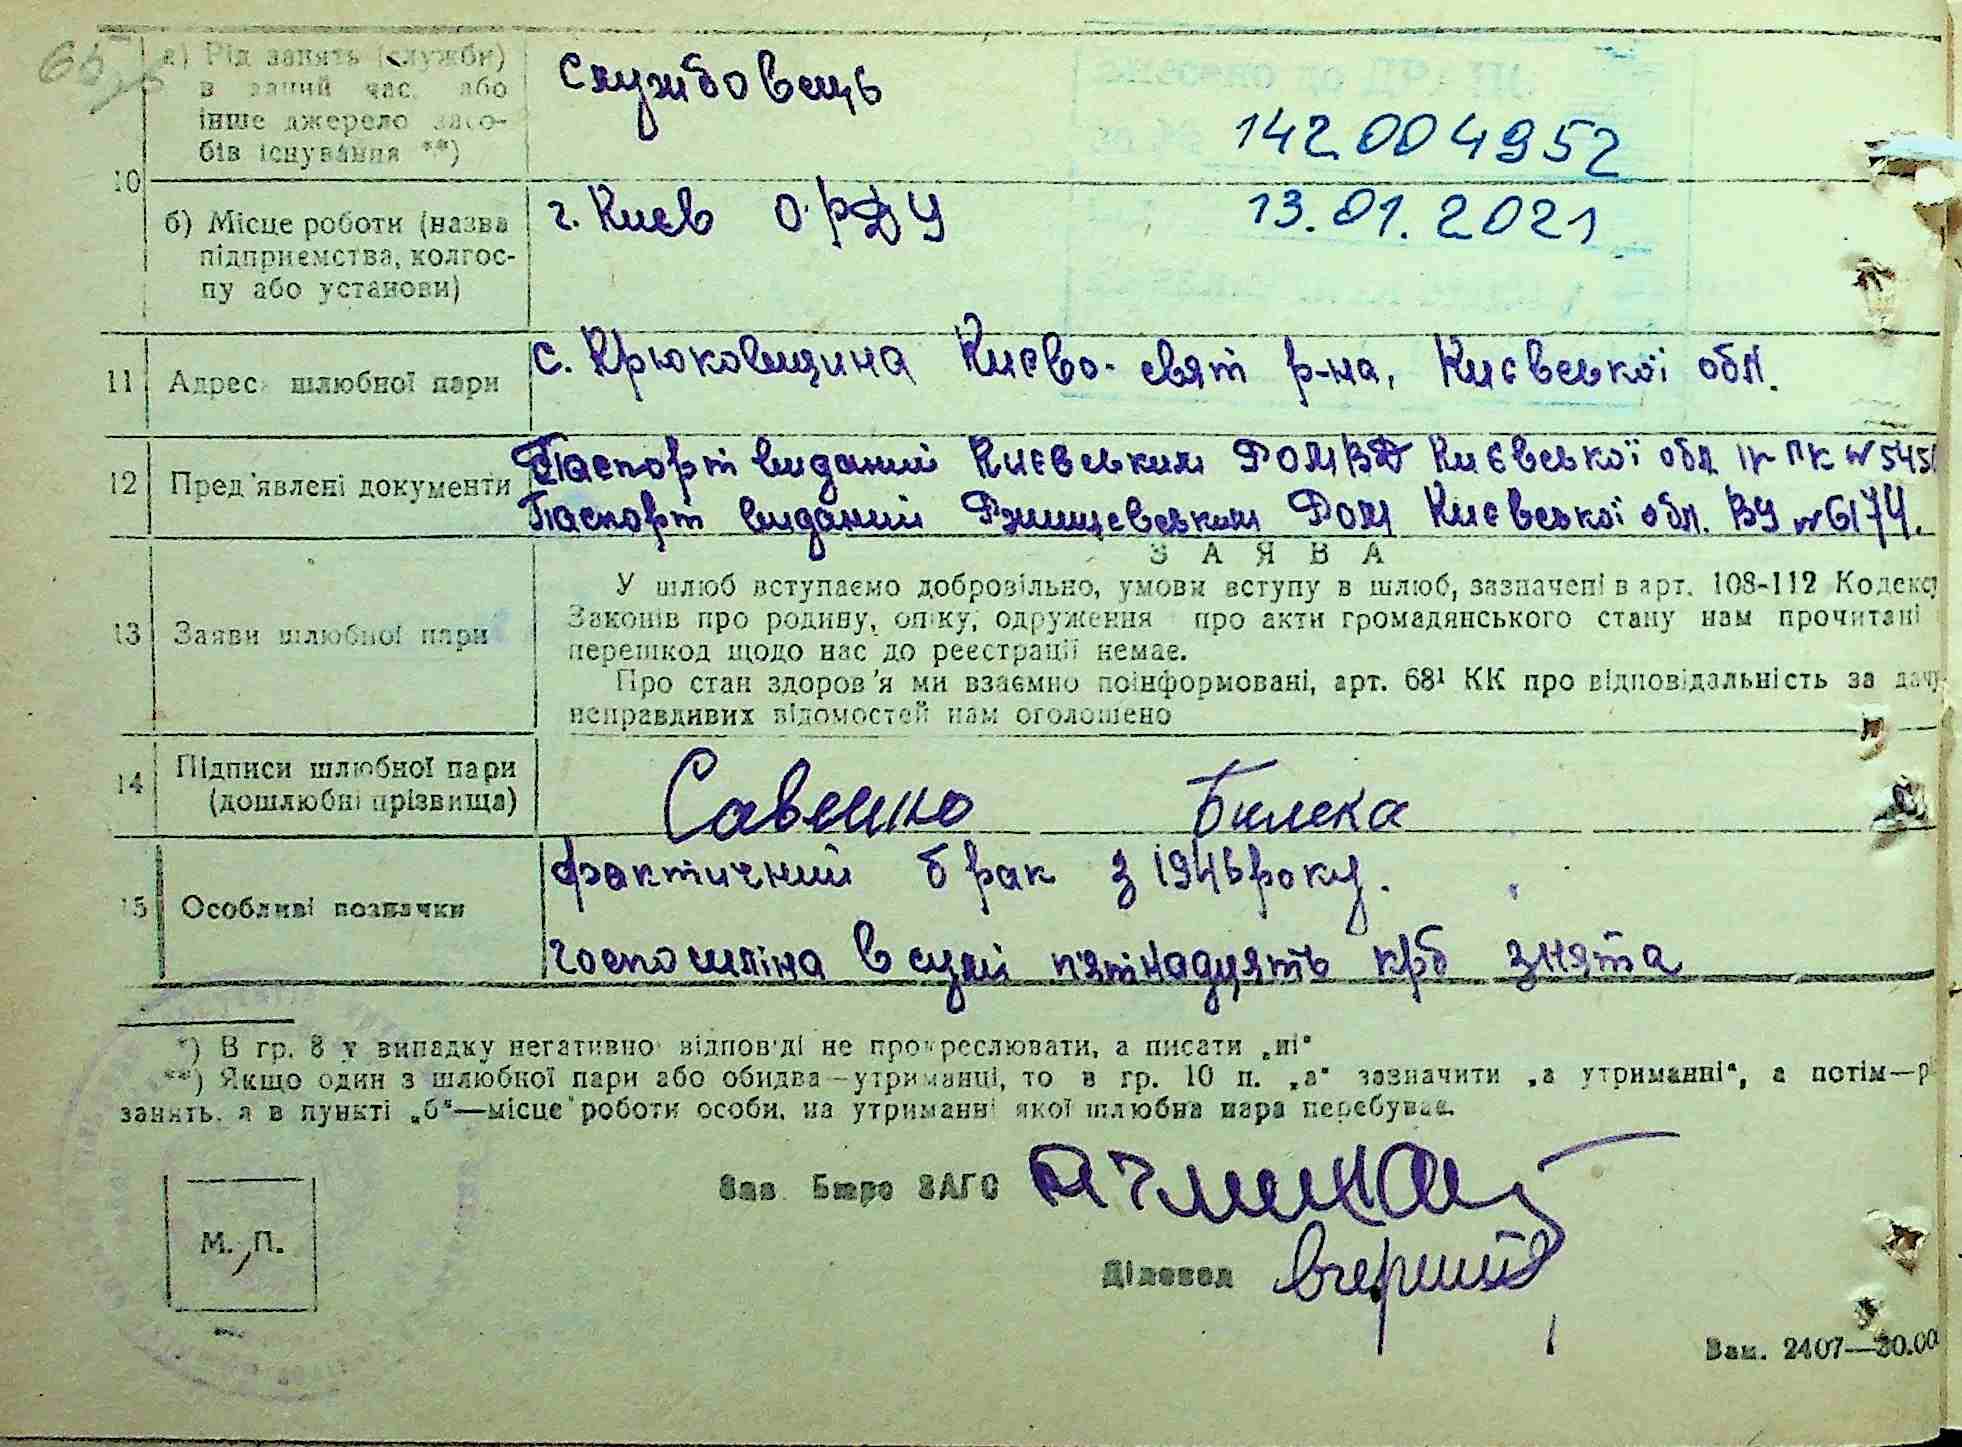 а) Рід занять (служби)
в даний час, або
інше джерело засо-
бів існування **)
службовець
142004952
10
б) Місце роботи (назва
підприємства, колгос-
пу або установи)
г. Києв О.РДУ
13.01.2021
11 Адрес шлюбної пари
с. Крюковщина Києво-свят р-на, Києвської обл.
12 Пред'явлені документи
Паспорт виданий Києвським РОМВД Києвської обл ПК № 545
Паспорт виданий Ржищевським Ром Києвської обл. ВУ № 6174.
13 Заяви шлюбної пари
ЗАЯВА
У шлюб вступаємо добровільно, умови вступу в шлюб, зазначені в арт. 108-112 Кодексу
Законів про родину, опіку, одруження про акти громадянського стану нам прочитані
перешкод щодо нас до реєстрації немає.
Про стан здоров'я ми взаємно поінформовані, арт. 68¹ КК про відповідальність за дачу
неправдивих відомостей нам оголошено
14 Підписи шлюбної пари
(дошлюбні прізвища)
Савенко Билека
15 Особливі позначки
фактичний брак з 1946 року.
госпошліна в сумі пятнадцять крб знята
*) В гр. 8 у випадку негативної відповіді не прокреслювати, а писати „ні“
**) Якщо один з шлюбної пари або обидва—утриманці, то в гр. 10 п. „а“ зазначити „а утриманні“, а потім—рі
занять, а в пункті „б“—місце роботи особи, на утриманні якої шлюбна пара перебуває.
Зав. Бюро ЗАГС
М. П.
Діловод
Зам. 2407—30.00